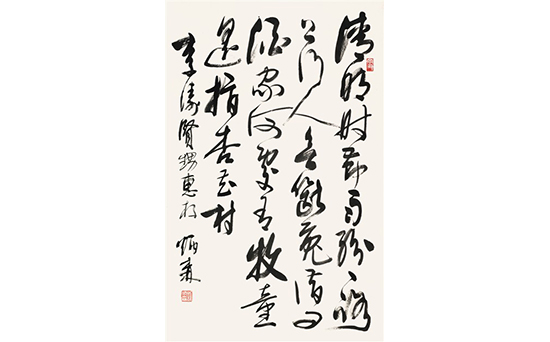 清明时节雨纷纷路
上行人欲断魂借问
酒家何处有牧童
遥指杏花村
李涛贤甥惠存 炳森